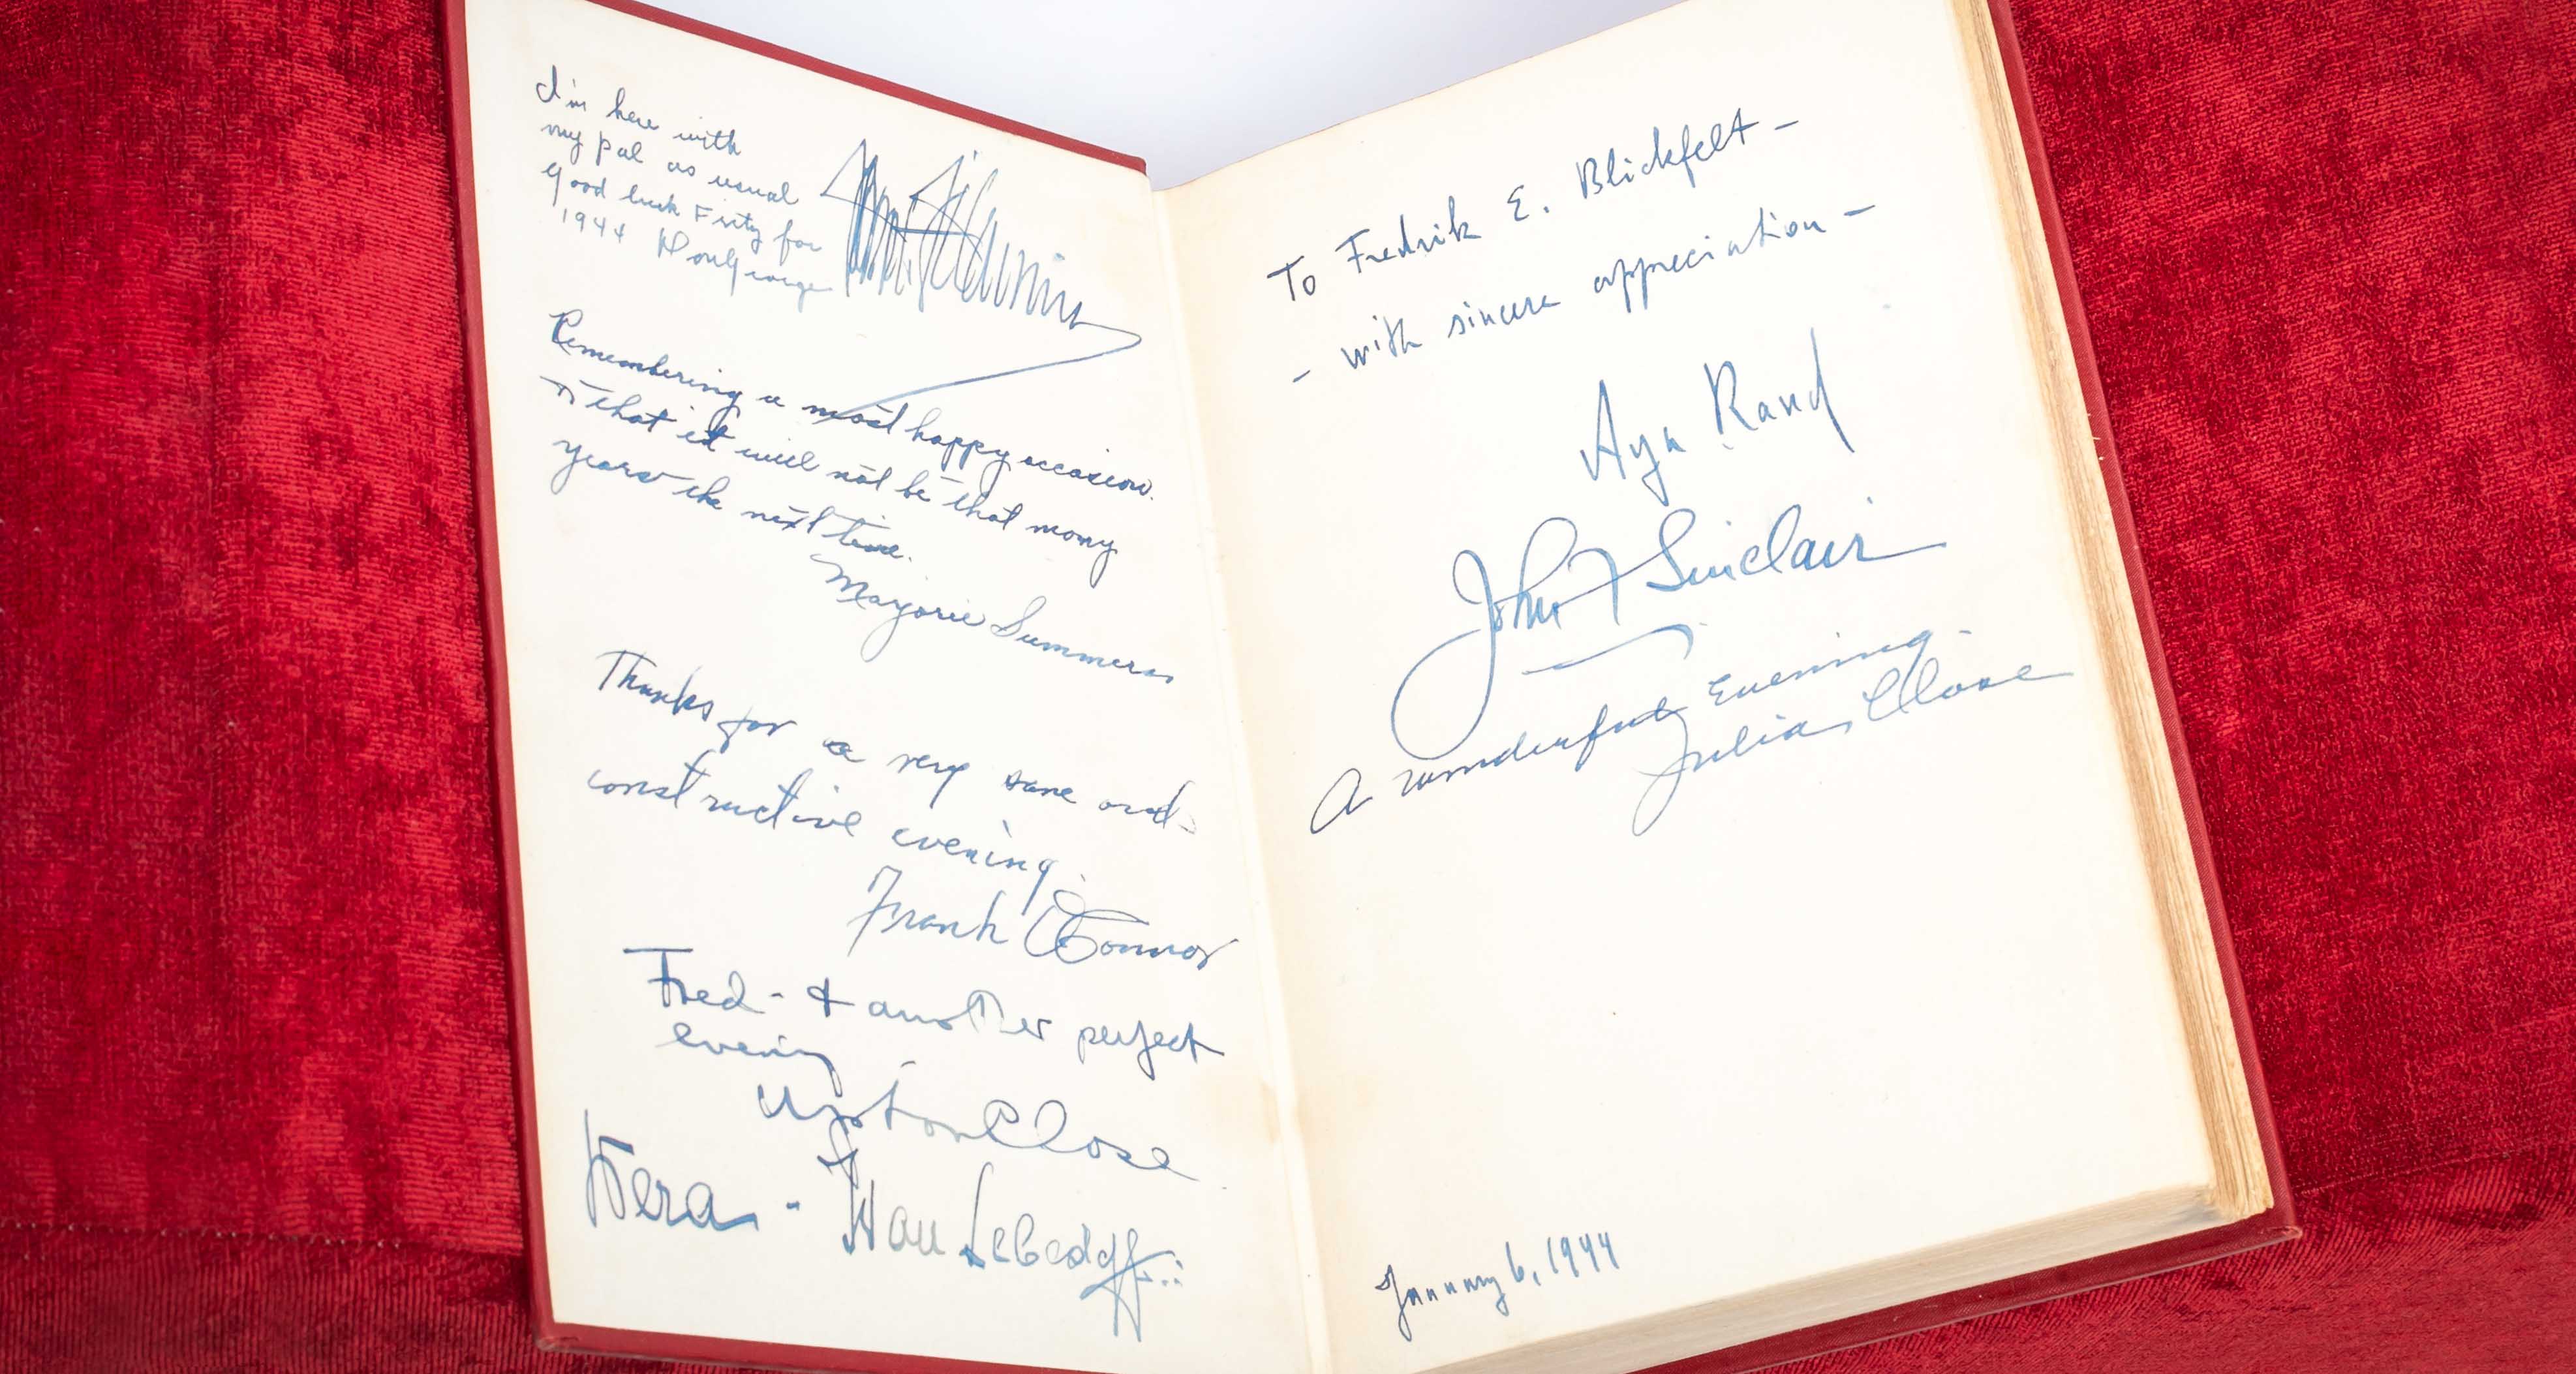 I'm here with
my pal as usual
Good luck for
1944
Remembering a most happy occasion.
that it will not be that many
years the next time.
Marjorie Summers
Thanks for a very sane and
constructive evening.
Frank O'Connor
Fred - & another perfect
evening
Upton Close
Vera - Ivan Lebedeff
To Fredrik E. Blickfelt -
- with sincere appreciation -
Ayn Rand
John F Sinclair
A wonderful Evening.
Julia Close
January 6, 1944